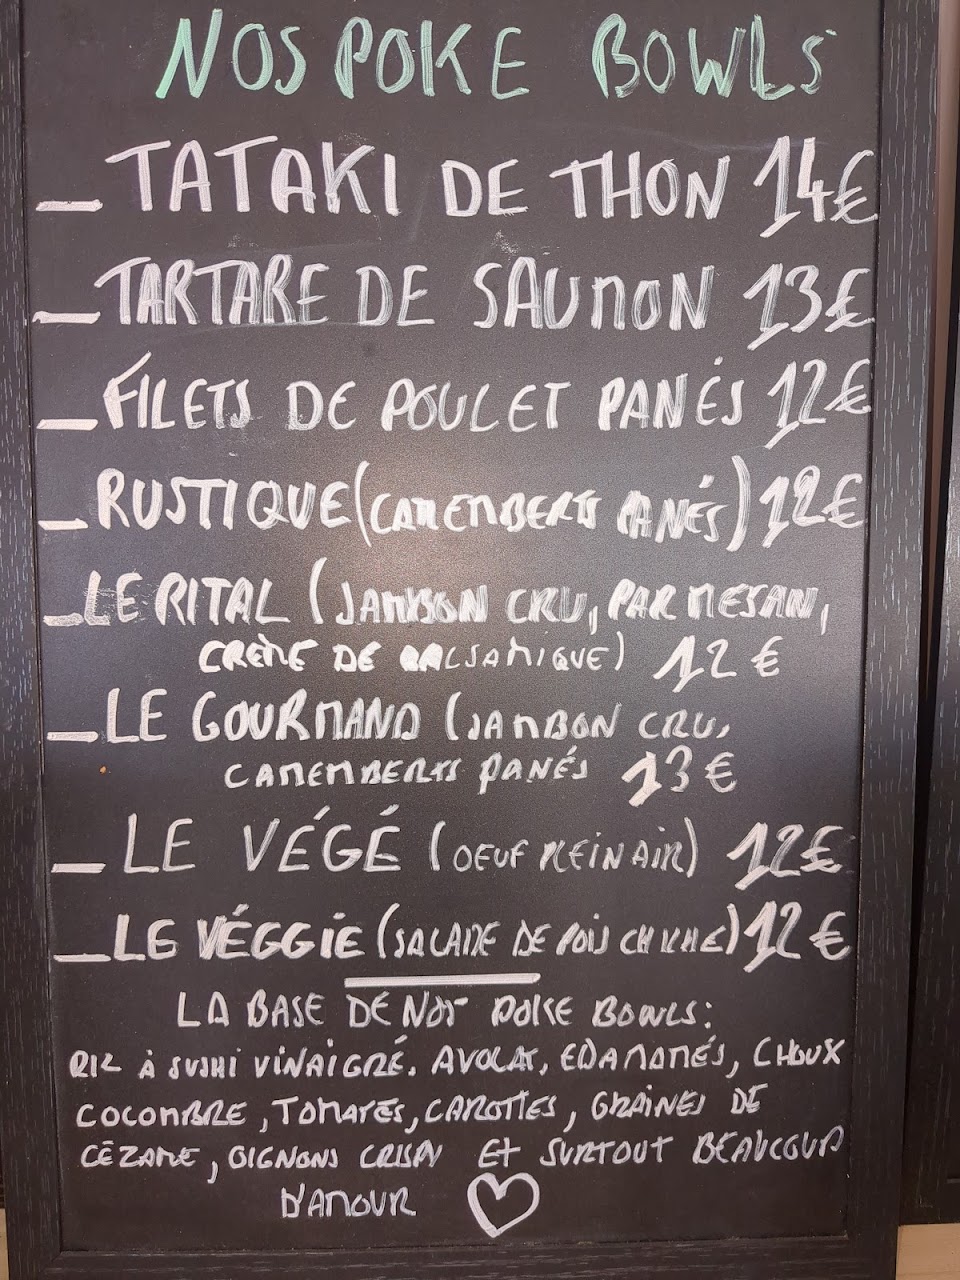 NOS POKE BOWLS
_TATAKI DE THON 14€
_TARTARE DE SAUMON 13€
_FILETS DE POULET PANÉS 12€
_RUSTIQUE (CAMEMBERTS PANÉS) 12€
_LE RITAL (JAMBON CRU, PARMESAN,
CRÈME DE BALSAMIQUE) 12€
_LE GOURMAND (JAMBON CRU,
CAMEMBERTS PANÉS 13€
_LE VÉGÉ (OEUF PLEIN AIR) 12€
_LE VÉGGIE (SALADE DE POIS CHICHE) 12€
LA BASE DE NOS POKE BOWLS:
RIZ À SUSHI VINAIGRÉ, AVOCAT, EDAMAMÉS, CHOUX
COCOMBRE, TOMATES, CAROTTES, GRAINES DE
CÉZAME, OIGNONS CRISPY ET SURTOUT BEAUCOUP
D'AMOUR